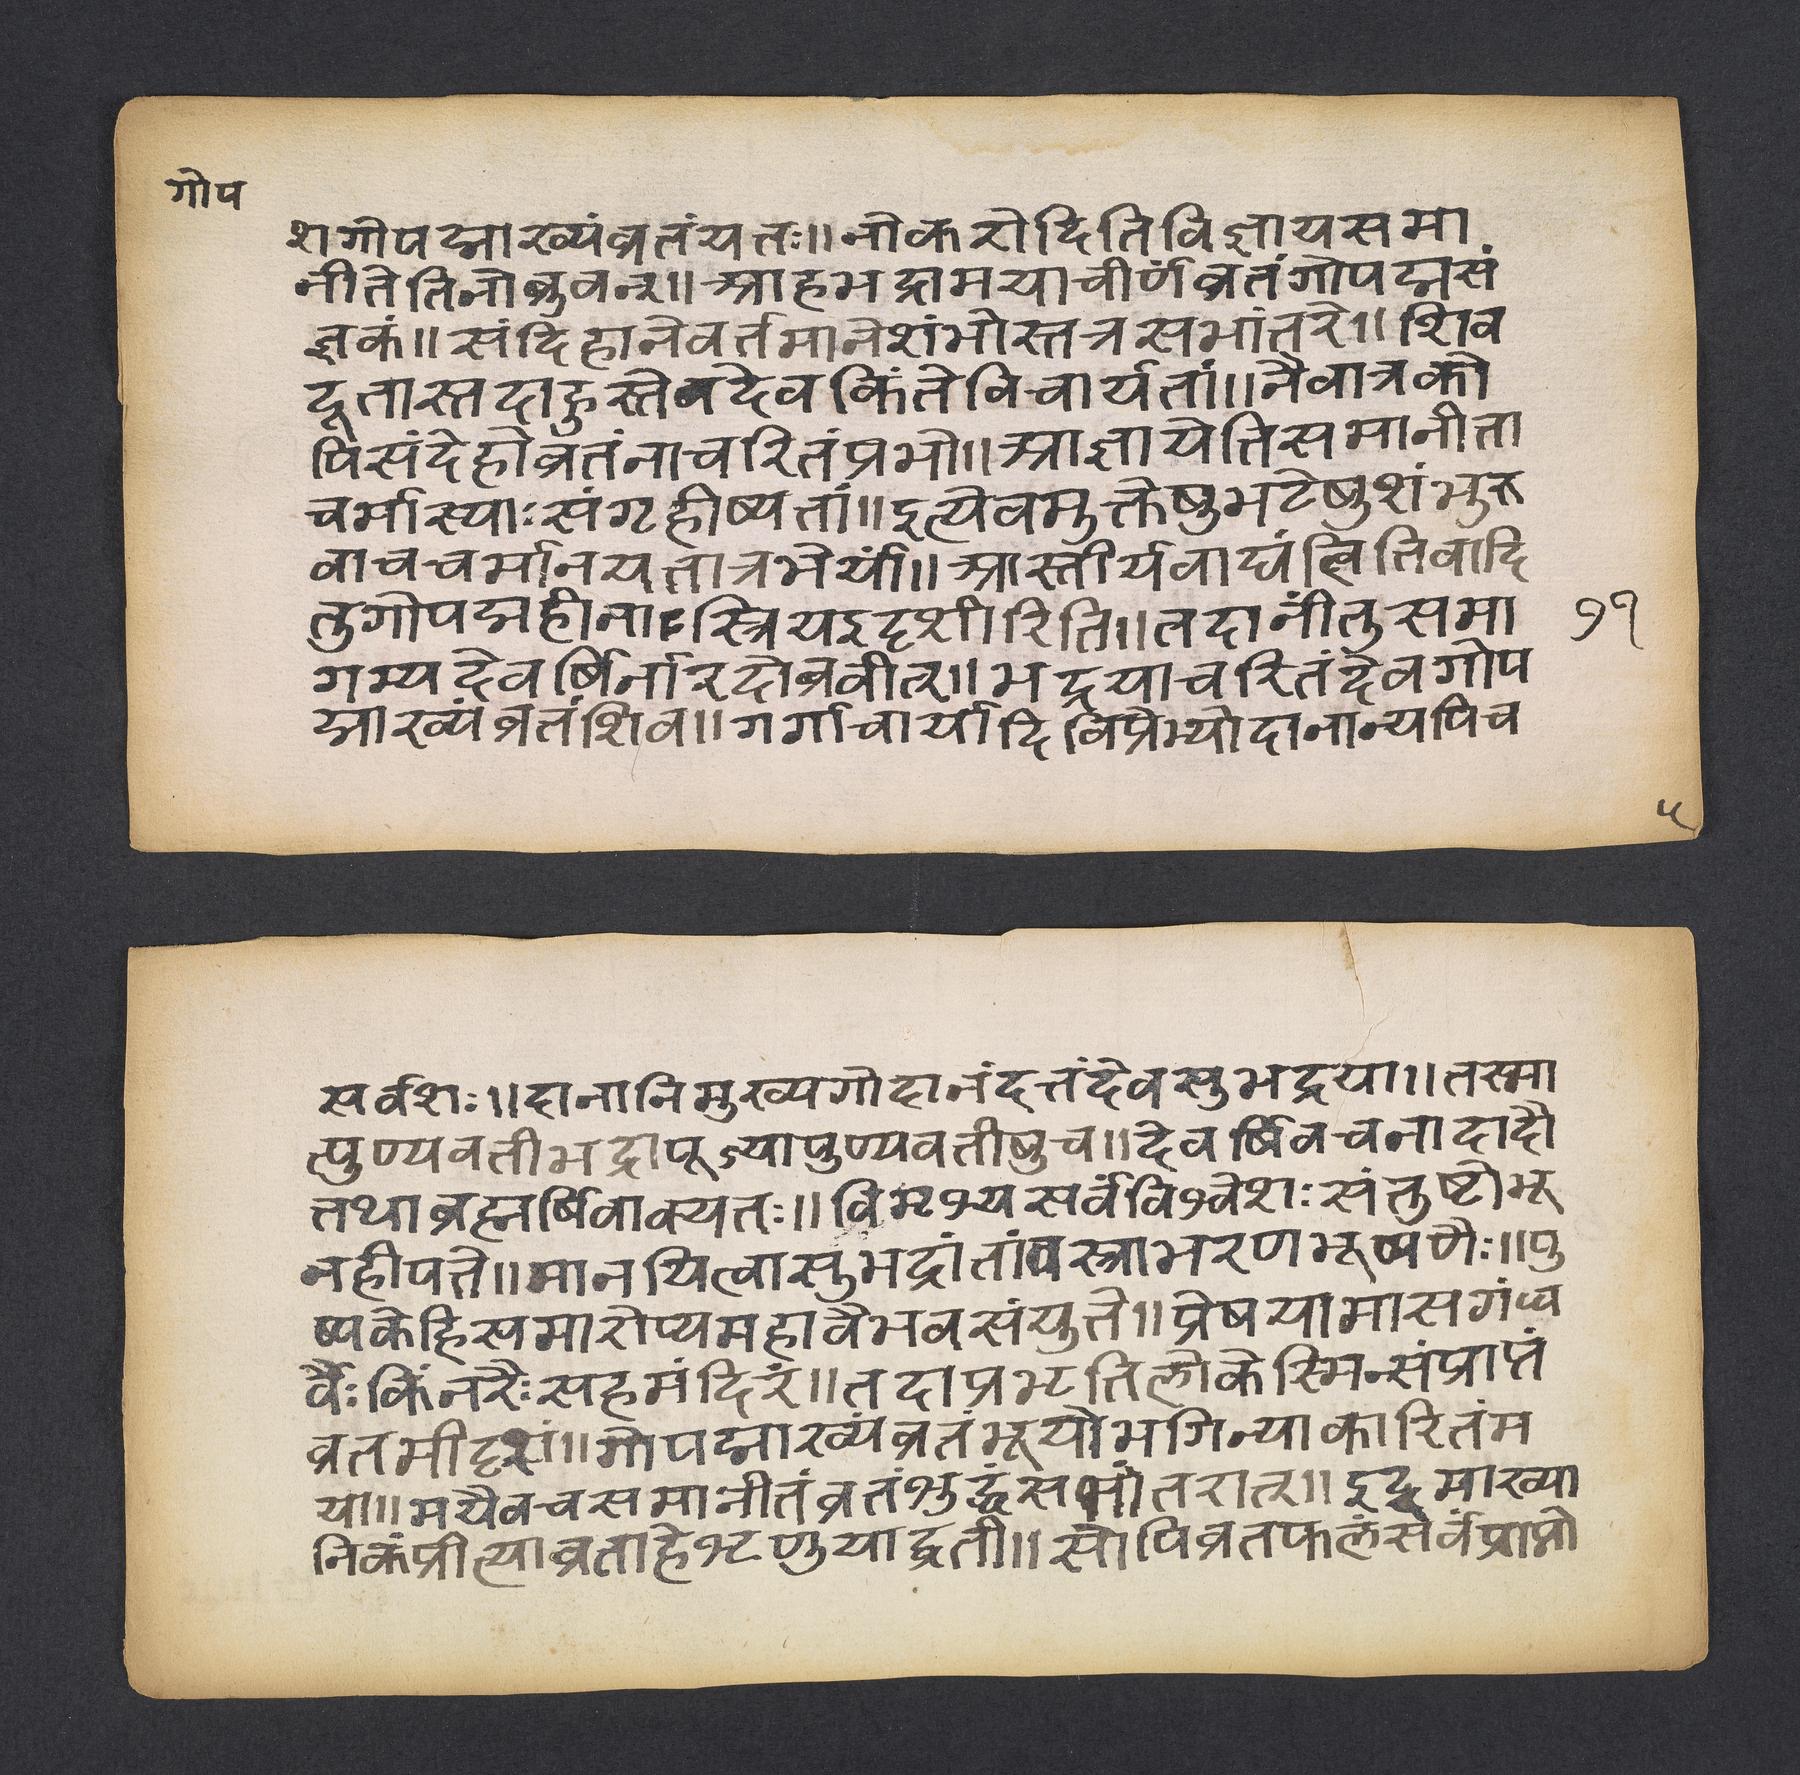 गोप
श गोपद्माख्यंव्रतंयतः॥नोकरोदितिविज्ञायसमा
नीतेतिनोब्रुवन्॥आहभद्रामयाचीर्णंव्रतंगोपद्मसं
ज्ञकं॥संदिहानेवर्तमानेशंभोस्तत्रसभांतरे॥शिव
दूतास्तदाहुस्तेवदेवकिंतेविचार्यतां॥नैवात्रको
पिसंदेहोव्रतंनाचरितंप्रभो॥आज्ञायेतिसमानीता
चर्मास्याःसंगृहीष्यतां॥इत्येवमुक्तेषुभटेषुशंभुरु
वाचचर्मानयतात्रभेर्यां॥आस्तीर्यवाद्यंत्वितिवादि
तुगोपद्महीनाःस्त्रियइदृशीरिति॥तदानींतुसमा
१९
गम्यदेवर्षिर्नारदोब्रवीत्॥भद्रयाचरितंदेवगोप
द्माख्यंव्रतंशिव॥गर्गाचार्यादिविप्रेभ्योदानान्यपिच
५
सर्वशः॥दानानिमुख्यगोदानंदत्तंदेवसुभद्रया॥तस्मा
त्पुण्यवतीभद्रापूज्यापुण्यवतीषुच॥देवर्षिवचनादादौ
तथाब्रह्मर्षिवाक्यतः॥विमृश्यसर्वविश्वेशःसंतुष्टोभू
न्नहीपते॥मानयित्वासुभद्रांतांवस्त्राभरणभूषणैः॥पु
ष्पकेहिसमारोप्यमहावैभवसंयुते॥प्रेषयामासगंध
र्वैःकिंनरैःसहमंदिरं॥तदाप्रभृतिलोकेस्मिन्संप्राप्तं
व्रतमीदृशं॥गोपद्माख्यंव्रतंभूयोभगिन्याकारितंम
या॥मयैवचसमानीतंव्रतंशुद्धंसभांतरात्॥इदमाख्या
निकंप्रीत्याव्रताहेशृणुयाद्व्रती॥सोपिव्रतफलंसर्वंप्राप्नो